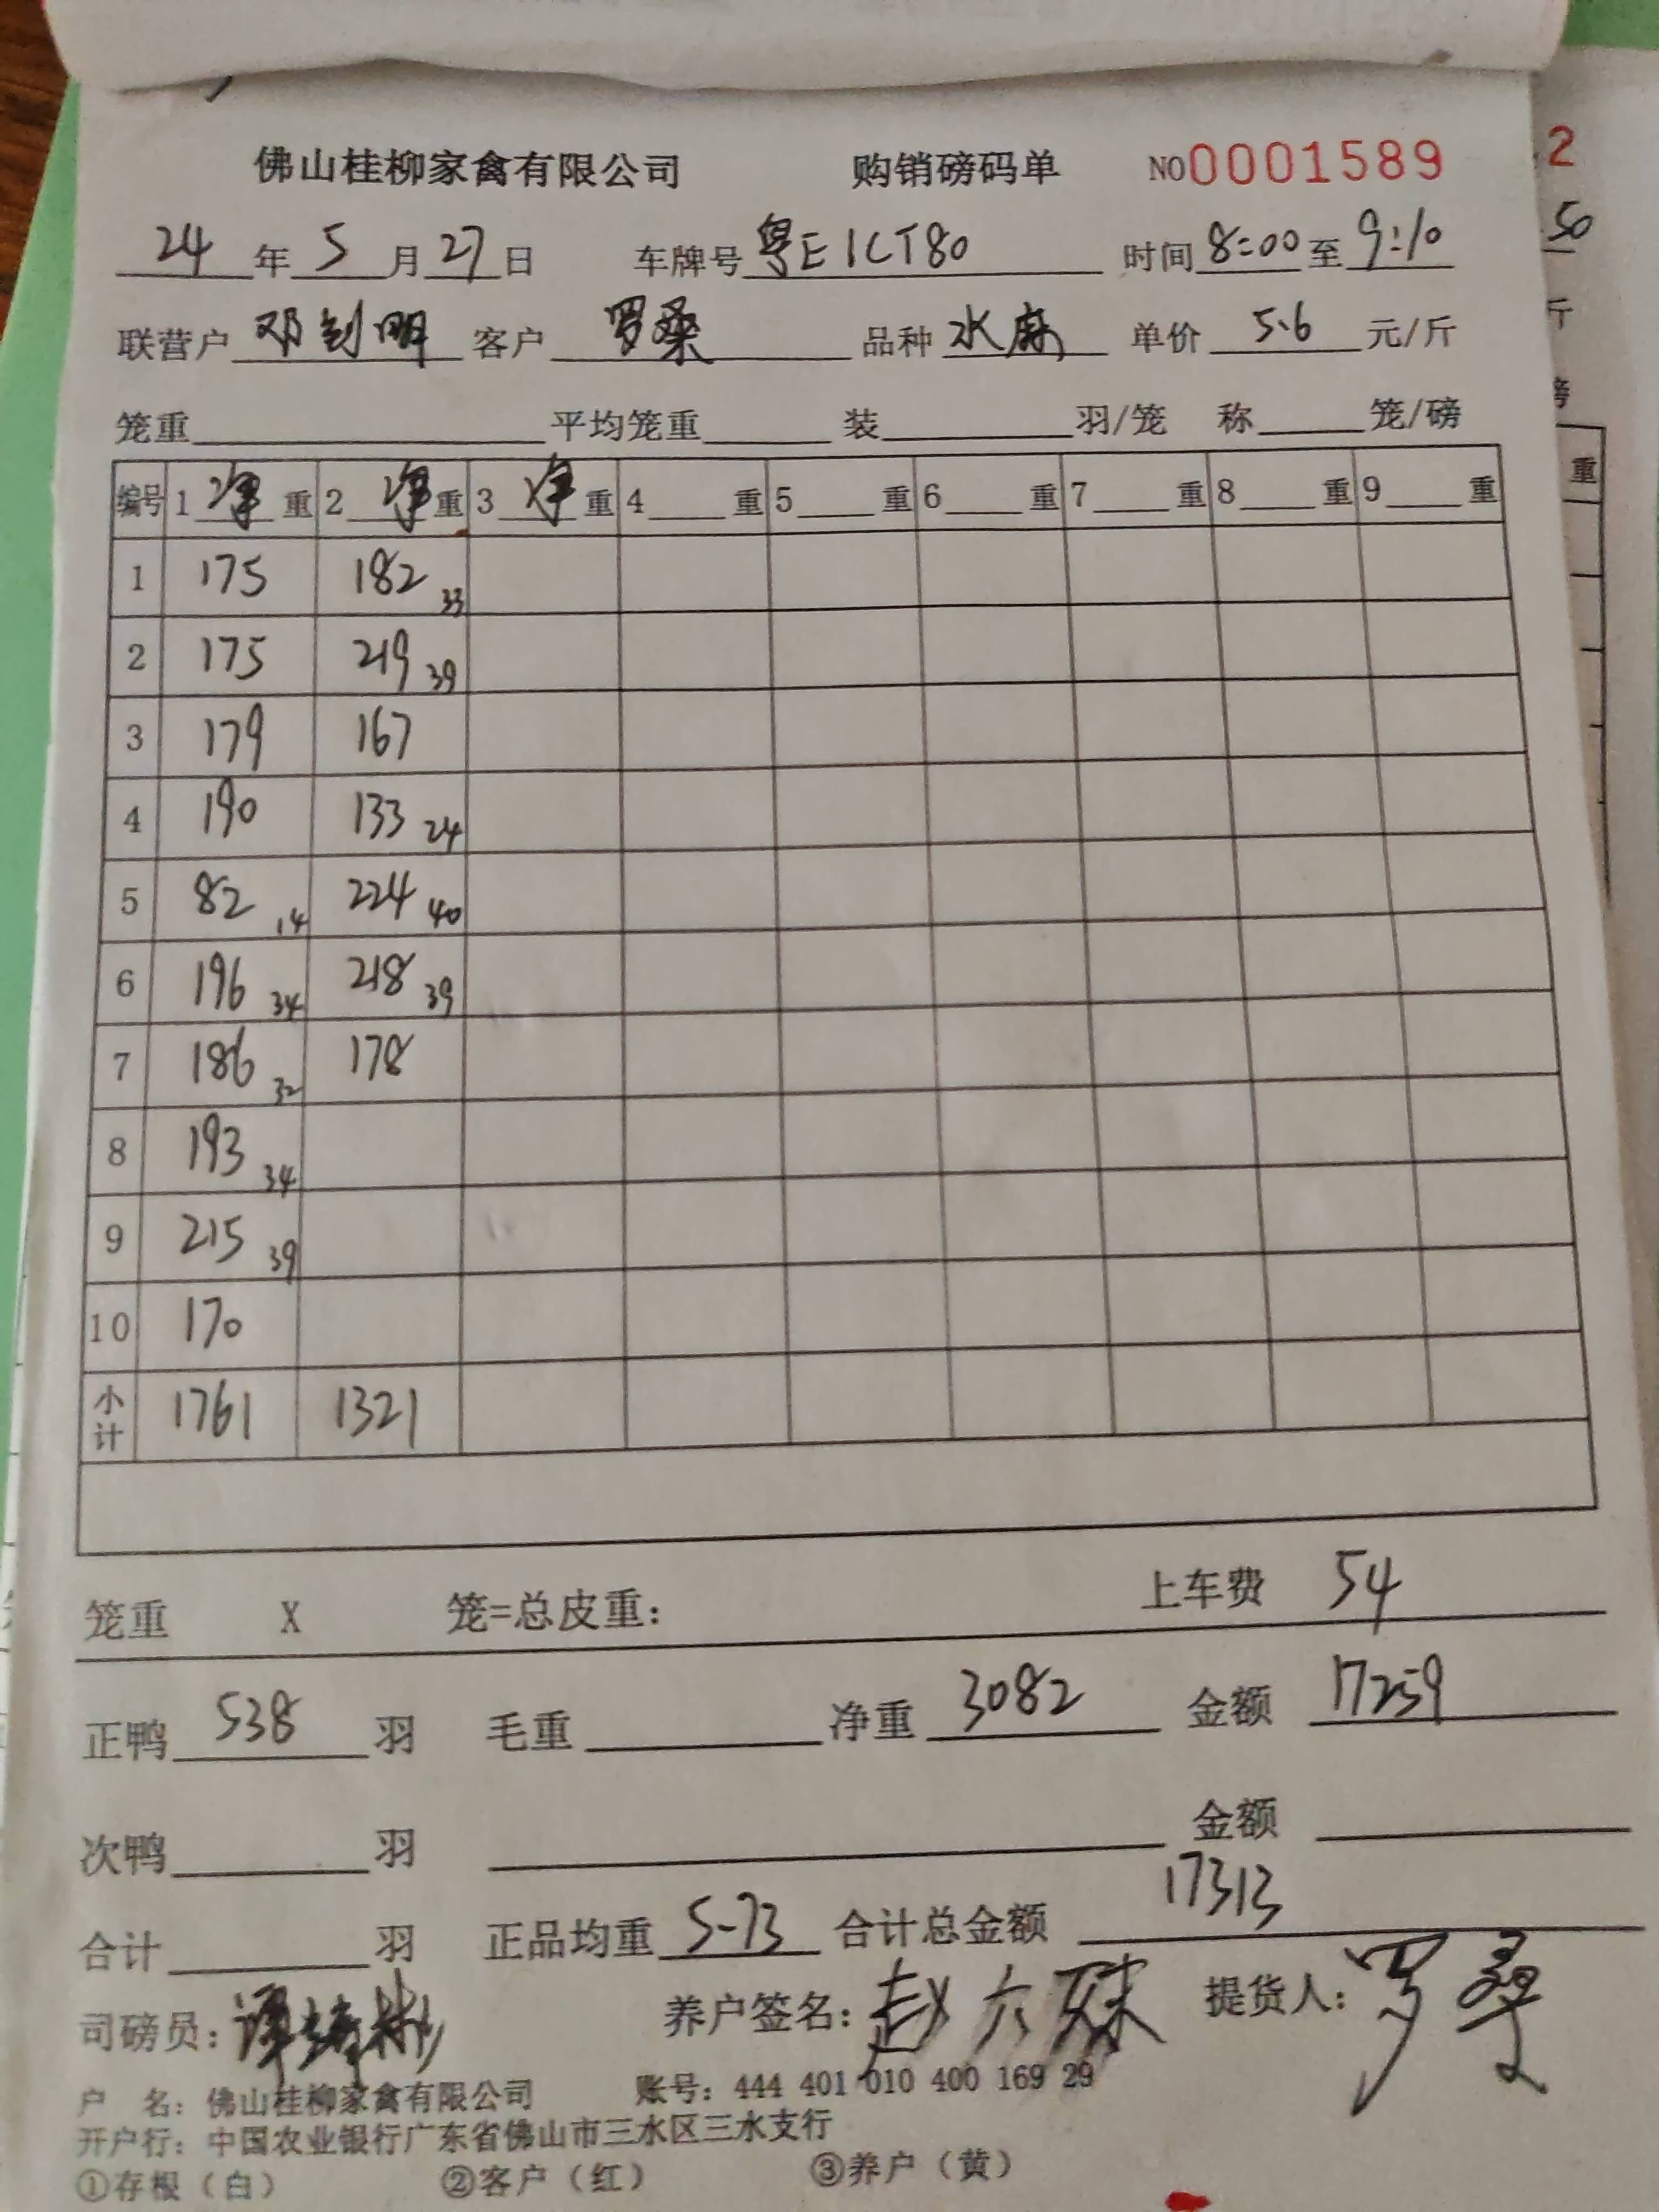 佛山桂柳家禽有限公司 购销磅码单 NO0001589
24年5月27日 车牌号粤E1CT80 时间8:00至9:10
联营户邓钊明 客户罗桑 品种水麻 单价5.6元/斤
笼重 平均笼重 装 羽/笼 称 笼/磅
编号 1净重 2净重 3净重 4重 5重 6重 7重 8重 9重
1 175 182 33
2 175 219 39
3 179 167
4 190 133 24
5 82 14 224 40
6 196 34 218 39
7 186 32 178
8 193 34
9 215 39
10 170
小计 1761 1321
笼重 X 笼=总皮重: 上车费 54
正鸭538羽 毛重 净重3082 金额17259
次鸭 羽 金额
合计 羽 正品均重5-73 合计总金额17313
司磅员: 养户签名:赵六妹 提货人:罗桑
户 名:佛山桂柳家禽有限公司 账号:444 401 010 400 169 29
开户行:中国农业银行广东省佛山市三水区三水支行
①存根(白) ②客户(红) ③养户(黄)
2
50
斤
磅
重